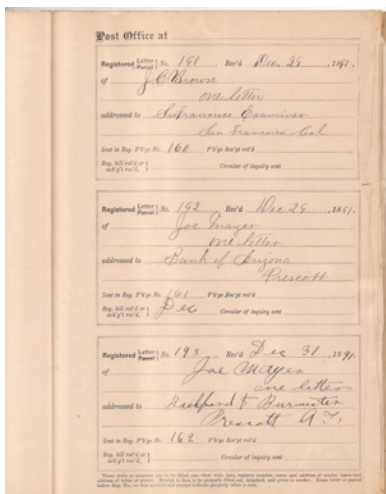 Post Office at
Registered Letter Parcel } No. 191 Rec'd Dec 29, 1891.
of J. C. Brown
one letter
addressed to San Francisco Examiner
San Francisco Cal
Sent in Reg. P'k'ge No. 160 P'k'ge Rec'pt ret'd
Reg. bill ret'd or ack'g't rec'd, } Circular of inquiry sent
Registered Letter Parcel } No. 192 Rec'd Dec 29, 1891.
of Joe Mayer
one letter
addressed to Bank of Arizona
Prescott
Sent in Reg. P'k'ge No. 161 P'k'ge Rec'pt ret'd
Reg. bill ret'd or ack'g't rec'd, } Dec Circular of inquiry sent
Registered Letter Parcel } No. 193 Rec'd Dec 31, 1891.
of Joe Mayer
one letter
addressed to & Burmister
Prescott A. T.
Sent in Reg. P'k'ge No. 162 P'k'ge Rec'pt ret'd
Reg. bill ret'd or ack'g't rec'd, } Circular of inquiry sent